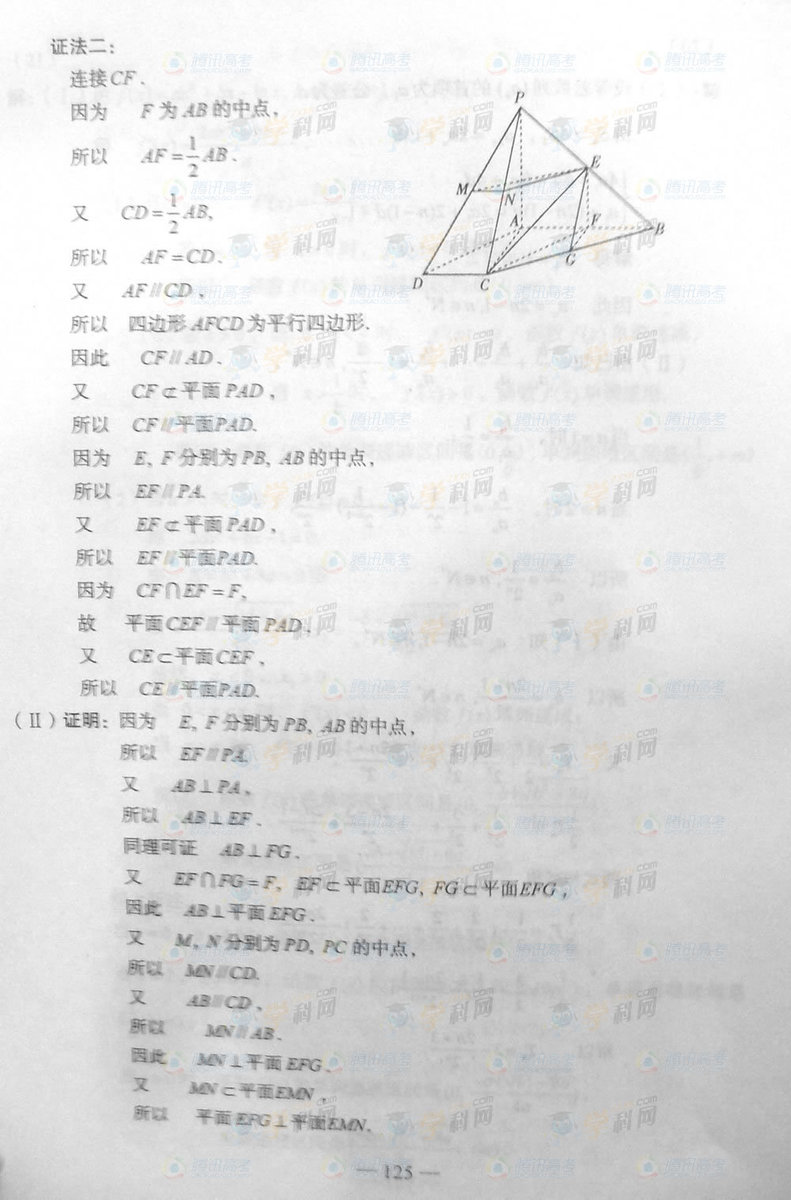 证法二：
连接CF．
因为 F为AB的中点，
所以 AF=1/2AB．
又 CD=1/2AB,
所以 AF=CD．
又 AF∥CD，
所以 四边形AFCD为平行四边形.
因此 CF∥AD．
又 CF⊄平面PAD，
所以 CF∥平面PAD.
因为 E, F分别为PB, AB的中点，
所以 EF∥PA.
又 EF⊄平面PAD，
所以 EF∥平面PAD.
因为 CF∩EF=F,
故 平面CEF∥平面PAD，
又 CE⊂平面CEF，
所以 CE∥平面PAD.
P
E
M
N
A
F
B
G
D
C
(Ⅱ)证明：因为 E, F分别为PB, AB的中点，
所以 EF∥PA.
又 AB⊥PA，
所以 AB⊥EF．
同理可证 AB⊥FG．
又 EF∩FG=F, EF⊂平面EFG, FG⊂平面EFG，
因此 AB⊥平面EFG．
又 M, N分别为PD, PC的中点，
所以 MN∥CD.
又 AB∥CD，
所以 MN∥AB．
因此 MN⊥平面EFG．
又 MN⊂平面EMN，
所以 平面EFG⊥平面EMN.
— 125 —
腾讯高考
学科网
.com